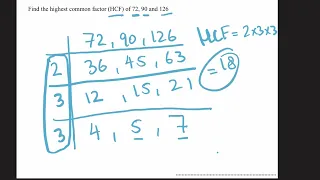 Find the highest common factor (HCF) of 72, 90 and 126
72, 90, 126
HCF = 2×3×3
2 36, 45, 63
= 18
3 12, 15, 21
3 4, 5, 7